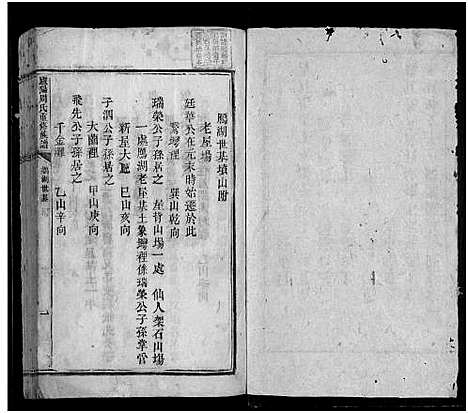 鵬湖世基墳山附
老屋場
廷華公在元末時始遷於此
灣裡　巽山乾向
瑞榮公子孫居之　屋背山場一處　仙人架石山場
一處鵬湖老屋基土象灣裡係瑞榮公子孫掌管
新屋大廳　巳山亥向
子泗公子孫居之
大崗裡　甲山庚向
飛先公子孫居之
千金灘　乙山辛向
周氏重修族譜
鵬湖世基
一